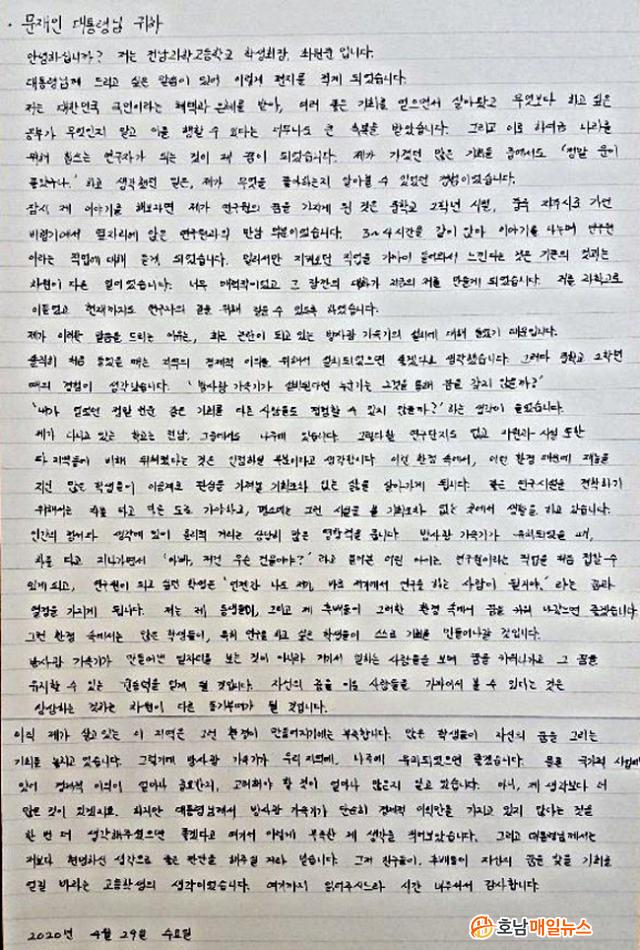 · 문재인 대통령님 귀하
안녕하십니까? 저는 전남과학고등학교 학생회장, 최원준 입니다.
대통령님께 드리고 싶은 말씀이 있어 이렇게 편지를 적게 되었습니다.
저는 대한민국 국민이라는 혜택과 은혜를 받아, 여러 좋은 기회를 얻으면서 살아왔고 무엇보다 하고 싶은
공부가 무엇인지 알고 이를 행할 수 있다는 너무나도 큰 축복을 받았습니다. 그리고 이로 하여금 나라를
위해 힘쓰는 연구자가 되는 것이 제 꿈이 되었습니다. 제가 가졌던 많은 기회들 중에서도 '정말 운이
좋았구나.' 하고 생각했던 일은, 제가 무엇을 좋아하는지 알아볼 수 있었던 경험이었습니다.
잠시 제 이야기를 해보자면 제가 연구원의 꿈을 가지게 된 것은 중학교 2학년 시절, 중국 자주시로 가던
비행기에서 옆자리에 앉은 연구원과의 만남 덕분이었습니다. 3~4시간을 같이 앉아 이야기를 나누며 연구원
이라는 직업에 대해 듣게 되었습니다. 멀리서만 지켜보던 직업을 가까이 들여다와서 느낀다는 것은 기존의 것과는
차원이 다른 일이었습니다. 너무 매력적이었고 그 잠깐의 대화가 지금의 저를 만들게 되었습니다. 저를 과학고로
이끌었고 현재까지도 연구자의 꿈을 위해 걸을 수 있도록 하였습니다.
제가 이러한 말씀을 드리는 이유는, 최근 논란이 되고 있는 방사광 가속기의 설치에 대해 들었기 때문입니다.
솔직히 처음 들었을 때는 지역의 경제적 이익을 위해서 설치되었으면 좋겠다고 생각했습니다. 그러다 중학교 2학년
때의 경험이 생각났습니다. '방사광 가속기가 설치된다면 누군가는 그것을 통해 꿈을 갖지 않을까?'
'내가 얻었던 정말 천운 같은 기회를 다른 사람들도 경험할 수 있지 않을까?' 하는 생각이 들었습니다.
제가 다니고 있는 학교는 전남, 그중에서도 나주에 있습니다. 그렇다할 연구단지도 없고 자원과 시설 또한
타 지역들에 비해 뒤쳐졌다는 것은 인정하실 부분이라고 생각합니다. 이런 환경 속에서, 이런 환경 때문에 재능을
지닌 많은 학생들이 이공계로 관심을 가져볼 기회조차 없는 삶을 살아가게 됩니다. 좋은 연구시설을 견학하기
위해서는 차를 타고 먼 곳으로 가야하고, 평소에는 그런 시설을 볼 기회조차 없는 곳에서 생활을 하고 있습니다.
인간의 정서와 생각에 있어 물리적 거리는 상당히 많은 영향력을 줍니다. 방사광 가속기가 유치되었을 때,
차를 타고 지나가면서 '아빠, 저건 무슨 건물이야?' 라고 물어본 어린 아이는 연구원이라는 직업을 처음 접할 수
있게 되고, 연구원이 되고 싶던 학생은 '언젠가 나도 저기, 바로 저기에서 연구를 하는 사람이 될거야.' 라는 꿈과
열정을 가지게 됩니다. 저는 제 동생들이, 그리고 제 후배들이 그러한 환경 속에서 꿈을 키워 나갔으면 좋겠습니다.
그런 환경 속에서는 많은 학생들이, 특히 연구를 하고 싶은 학생들이 스스로 기회를 만들어나갈 것입니다.
방사광 가속기가 만들어낸 일자리를 보는 것이 아니라 거기서 일하는 사람들을 보며 꿈을 키워나가고 그 꿈을
유지할 수 있는 원동력을 얻게 될 것입니다. 자신의 꿈을 이룬 사람들을 가까이서 볼 수 있다는 것은
상상하는 것과는 차원이 다른 동기부여가 될 것입니다.
아직 제가 살고 있는 이 지역은 그런 환경이 만들어지기에는 부족합니다. 많은 학생들이 자신의 꿈을 그리는
기회를 놓치고 있습니다. 그렇기에 방사광 가속기가 우리 지역에, 나주에 유치되었으면 좋겠습니다. 물론 국가적 사업에
있어 경제적 이익이 얼마나 중요한지, 고려해야 할 것이 얼마나 많은지 알고 있습니다. 아니, 제 생각보다 더
많은 것이 있겠지요. 하지만 대통령님께서 방사광 가속기가 단순히 경제적 이익만을 가지고 있지 않다는 것을
한 번 더 생각해주셨으면 좋겠다고 여겨서 이렇게 부족한 제 생각을 적어보았습니다. 그리고 대통령님께서는
저보다 현명하신 생각으로 좋은 판단을 해주실 거라 믿습니다. 그저 친구들이, 후배들이 자신의 꿈을 찾을 기회를
얻길 바라는 고등학생의 생각이었습니다. 여기까지 읽어주시느라 시간 내주셔서 감사합니다.
2020년 4월 29일 수요일
호남매일뉴스